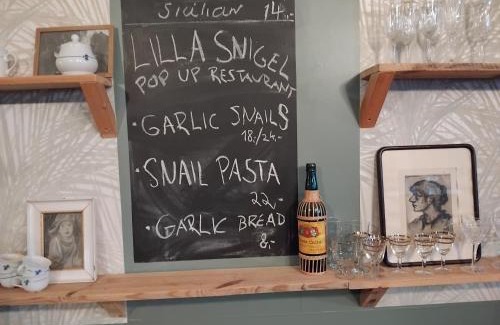 Sicilian 14.-
LILLA SNIGEL
POP UP RESTAURANT
• GARLIC SNAILS
18,-/24.-
• SNAIL PASTA
22,-
• GARLIC BREAD
8,-